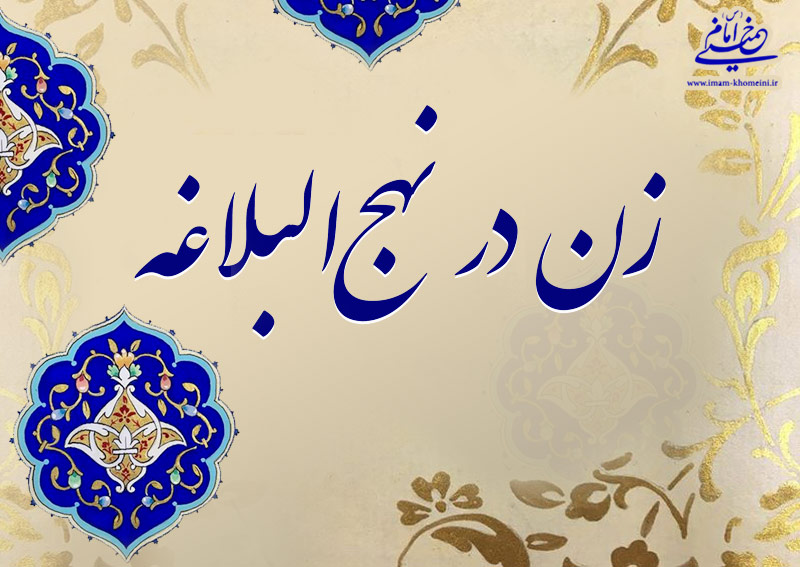 امام خمینی (س)
www.imam-khomeini.ir
زن در نهج البلاغه